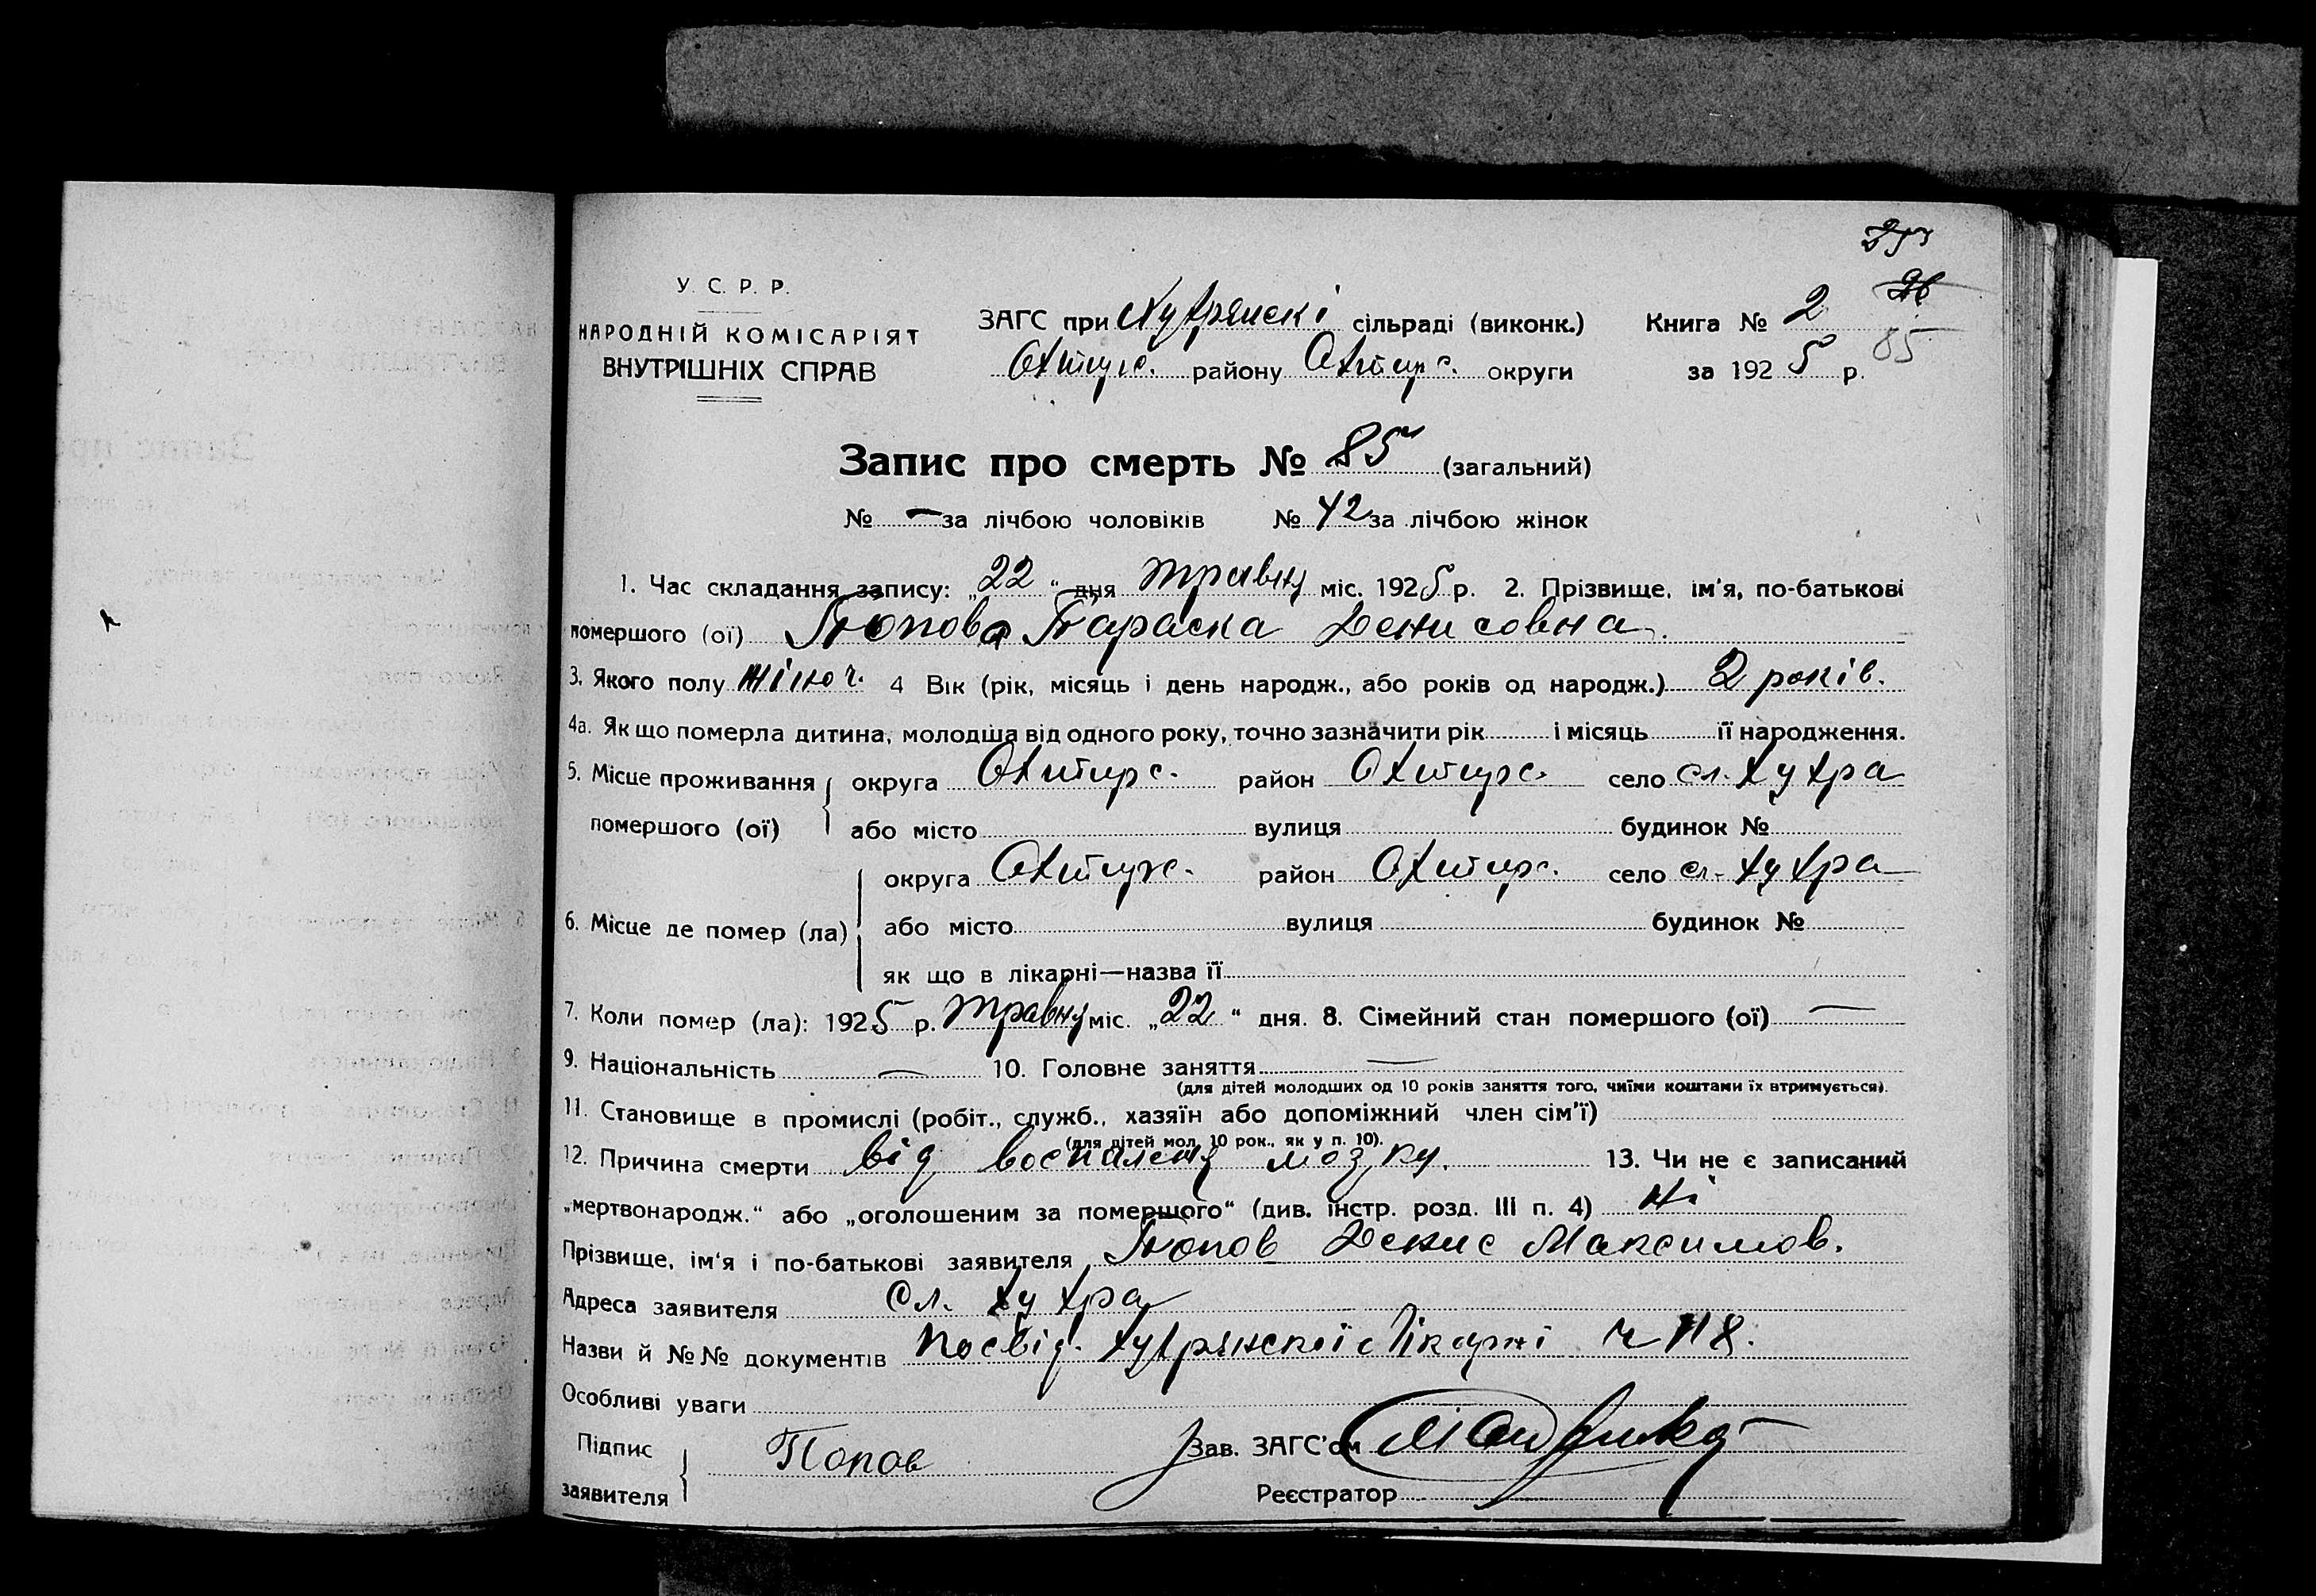 85
26
У. С. Р. Р.
НАРОДНІЙ КОМІСАРІЯТ
ВНУТРІШНІХ СПРАВ
ЗАГС при Хухрянскі сільраді (виконк.) Книга № 2
85
Охтирс. району Охтирс. округи за 1925 р.
Запис про смерть № 85 (загальний)
№ — за лічбою чоловіків № 42 за лічбою жінок
1. Час складання запису: „22“ дня травня міс. 1925 р. 2. Прізвище, ім'я, по-батькові
помершого (ої) Попова Параска Денисовна.
3. Якого полу жіноч. 4 Вік (рік, місяць і день народж., або років од народж.) 2 років.
4а. Як що померла дитина, молодша від одного року, точно зазначити рік і місяць її народження.
5. Місце проживання округа Охтирс. район Охтирс. село сл. Хухра
помершого (ої) або місто вулиця будинок №
округа Охтирс. район Охтирс. село сл. Хухра
6. Місце де помер (ла) або місто вулиця будинок №
як що в лікарні—назва її
7. Коли помер (ла): 1925 р. травня міс. „22“ дня. 8. Сімейний стан помершого (ої) —
9. Національність — 10. Головне заняття —
(для дітей молодших од 10 років заняття того, чиїми коштами їх втримується).
11. Становище в промислі (робіт., служб., хазяїн або допоміжний член сім'ї)
(для дітей мол. 10 рок., як у п. 10).
12. Причина смерти від воспаленя мозку. 13. Чи не є записаний
„мертвонародж.“ або „оголошеним за померщого“ (див. інстр. розд. III п. 4) Ні
Прізвище, ім'я і по-батькові заявителя Попов Денис Максимов.
Адреса заявителя Сл. Хухра
Назви й №№ документів Посвід. Хухрянскої Лікарні ч 118.
Особливі уваги
Підпис
заявителя Попов Зав. ЗАГС'ом
Реєстратор